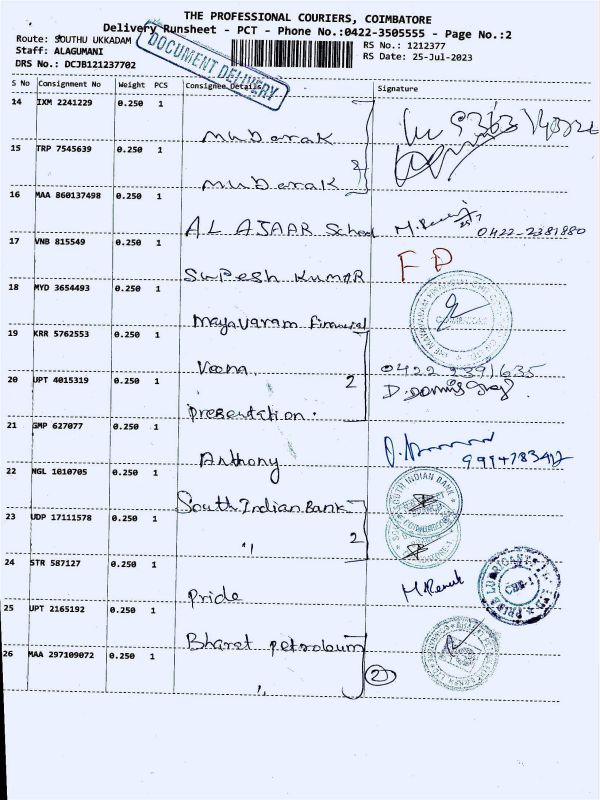 THE PROFESSIONAL COURIERS, COIMBATORE
Delivery Runsheet - PCT - Phone No.:0422-3505555 - Page No.:2
Route: SOUTHU UKKADAM
RS No.: 1212377
Staff: ALAGUMANI
RS Date: 25-Jul-2023
DRS No.: DCJB121237702
DOCUMENT DELIVERY
S No Consignment No Weight PCS Consignee Details Signature
14 IXM 2241229 0.250 1
mubarak
15 TRP 7545639 0.250 1
mubarak 2
16 MAA 860137498 0.250 1
AL AJAAR School 0422-2381880
17 VNB 815549 0.250 1
Supesh Kumar FP
18 MYD 3654493 0.250 1
Mayavaram Financial
19 KRR 5762553 0.250 1
Veena. 0422 2391635
20 UPT 4015319 0.250 1 2
Presentation.
21 GMP 627077 0.250 1
Anthony
22 NGL 1010705 0.250 1
South Indian Bank SOUTH INDIAN BANK
23 UDP 17111578 0.250 1
" 2
24 STR 587127 0.250 1
Pride
25 UPT 2165192 0.250 1
Bharat petroloum
26 MAA 297109072 0.250 1
" 2